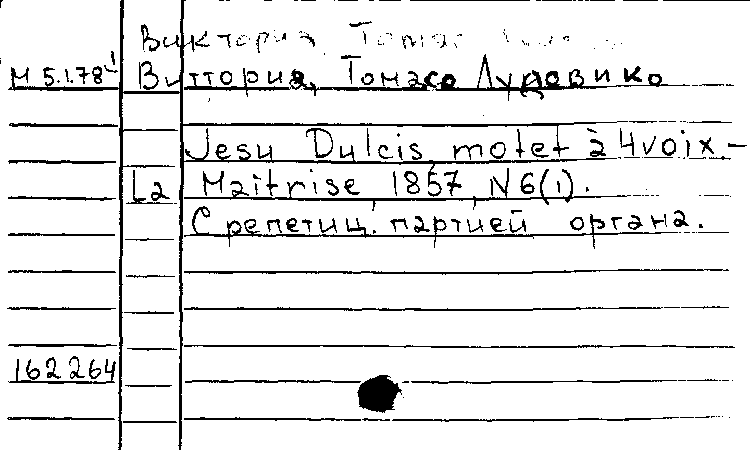 Виктория, Томас
М 5.1.78¹ Виттория, Томасо Лудовико
Jesu Dulcis, motet à 4 voix. –
La Maitrise, 1857, N 6(1).
С репетиц. партией органа.
162 264